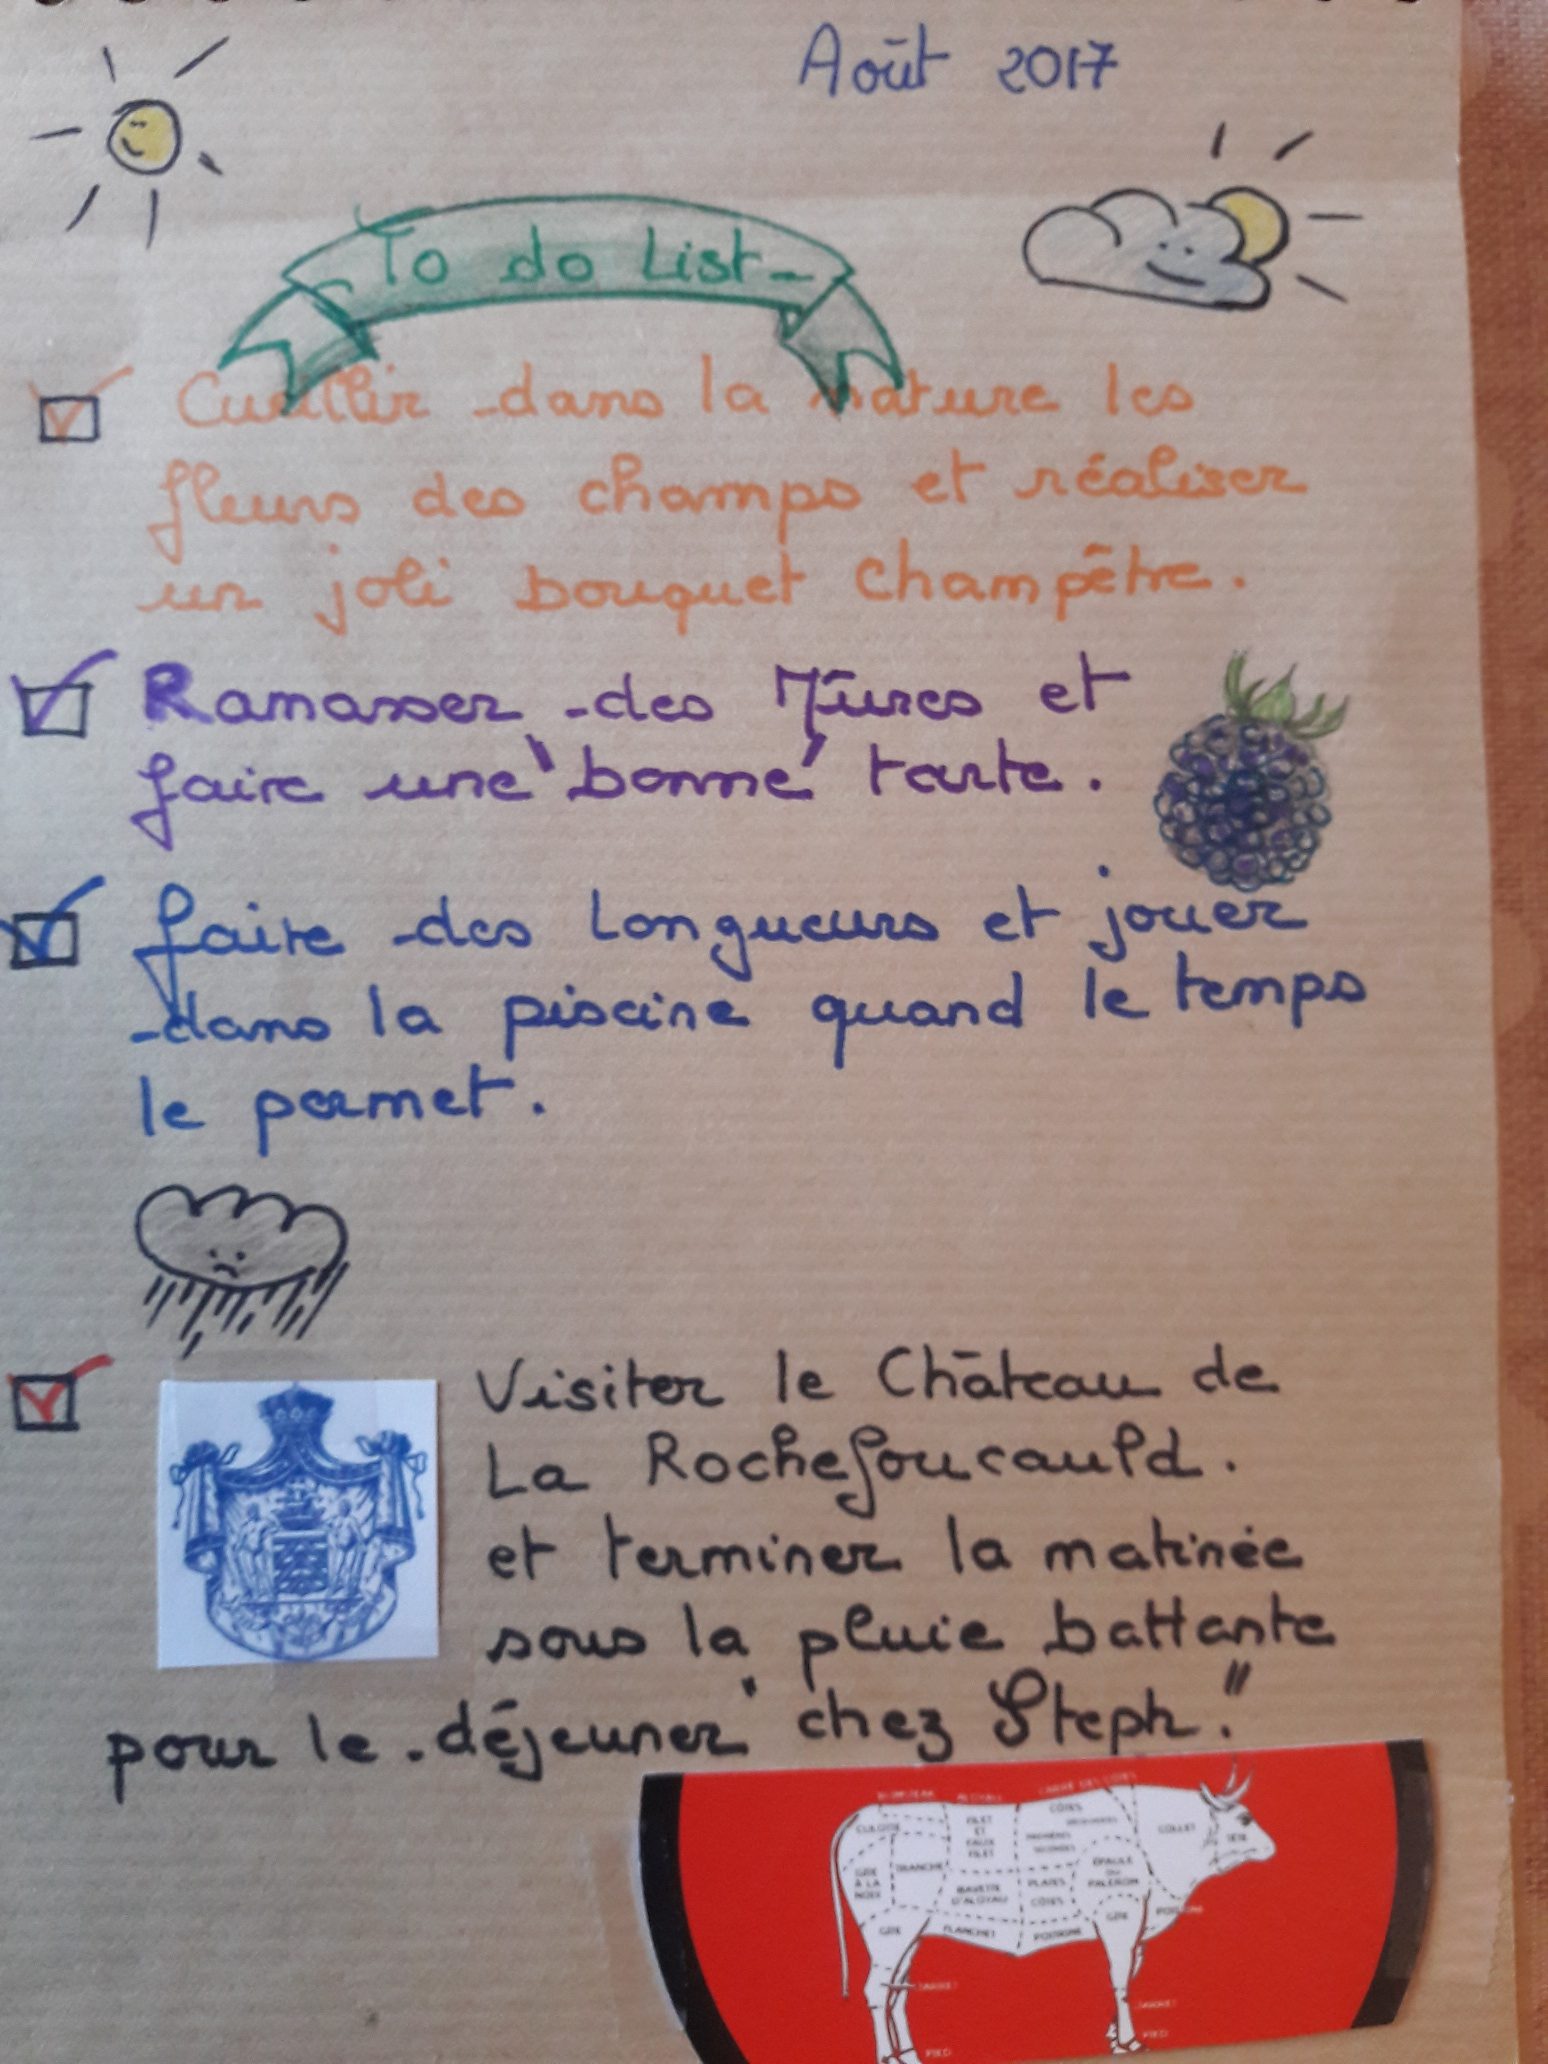 Août 2017
To do List
Cueillir dans la nature les
fleurs des champs et réaliser
un joli bouquet champêtre.
Ramasser des Mûres et
faire une "bonne" tarte.
faire des longueurs et jouer
dans la piscine quand le temps
le permet.
Visiter le Château de
La Rochefoucauld.
et terminer la matinée
sous la pluie battante
pour le déjeuner "chez Steph."
ALOYAU
CARRÉ DES CÔTES
CULOTTE
FILET
ET
FAUX
FILET
CÔTES
PREMIÈRES
SECONDES
COLLET
TÊTE
GÎTE
À LA
NOIX
TRANCHE
BAVETTE
D'ALOYAU
PLATES
CÔTES
ÉPAULE
OU
PALERON
GÎTE
FLANCHET
POITRINE
GÎTE
PIED
PIED